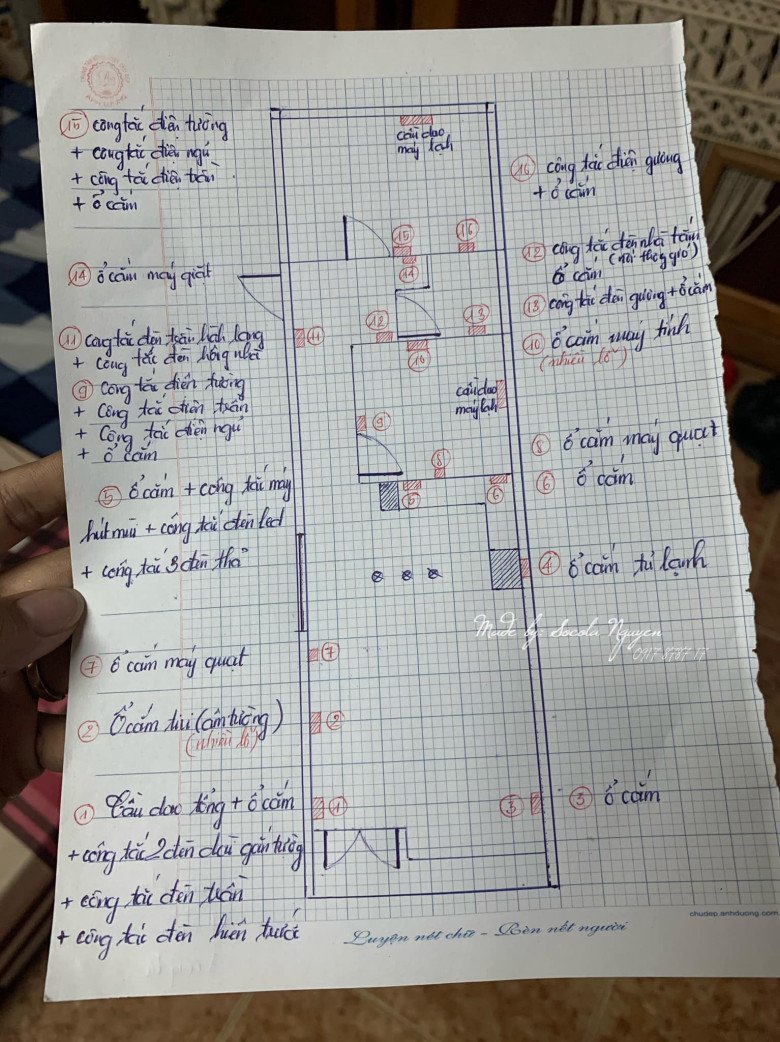 ⑮ công tắc điện tường
+ công tắc điện ngủ
+ công tắc điện trần
+ ổ cắm
⑭ ổ cắm máy giặt
⑪ công tắc đèn trần hành lang
+ công tắc đèn hông nhà
⑨ công tắc điện tường
+ công tắc điện trần
+ công tắc điện ngủ
+ ổ cắm
⑤ ổ cắm + công tắc máy
hút mùi + công tắc đèn led
+ công tắc 3 đèn thả
⑦ ổ cắm máy quạt
② ổ cắm tivi (âm tường)
(nhiều lỗ)
① Cầu dao tổng + ổ cắm
+ công tắc 2 đèn gắn tường
+ công tắc đèn trần
+ công tắc đèn hiên trước
cầu dao
máy lạnh
⑮
⑯
⑭
⑪
⑫
⑬
⑩
cầu dao
máy lạnh
⑨
⑧
⑤
⑥
④
⑦
②
①
③
⑯ công tắc điện gương
+ ổ cắm
⑫ công tắc đèn nhà tắm
ổ cắm (nối thông gió)
⑬ công tắc đèn gương + ổ cắm
⑩ ổ cắm máy tính
(nhiều lỗ)
⑧ ổ cắm máy quạt
⑥ ổ cắm
ổ cắm tủ lạnh
Made by: Socola Nguyen
0917 8787 17
③ ổ cắm
chudep.anhduong.com
Luyện nét chữ - Rèn nết người